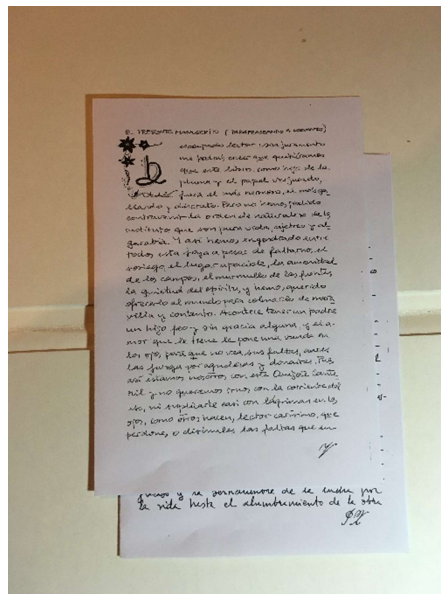 EL PRESENTE MANUSCRITO (PARAFRASEANDO A CERVANTES)
desocupado lector: sin juramento
me podrás creer que quisiéramos
que este libro, como hijo de la
pluma y el papel viejuno,
fuera el más hermoso, el más ga
llardo y discreto. Pero no hemos podido
contravenir la orden de naturaleza de
instituto que son pura vida, ajetreo y al
garabía. Y así hemos engendrado entre
todos esta joya a pesar de faltarnos el
sosiego, el lugar apacible, la amenidad
de los campos, el murmullo de las fuentes
la quietud del espíritu, y hemos querido
ofrecerlo al mundo para colmarlo de mara
villa y contento. Acontece tener un padre
un hijo feo y sin gracia alguna y el a
mor que le tiene le pone una venda en
los ojos para que no vea sus faltas, antes
las juzga por agudezas y donaires. Pues
así estamos nosotros con este Quijote
y no queremos irnos con la corriente del
uso, ni suplicarte casi con lágrimas en los
ojos, como otros hacen, lector carísimo, que
perdones o disimules las faltas que en
y la
la vida hasta el alumbramiento de la obra